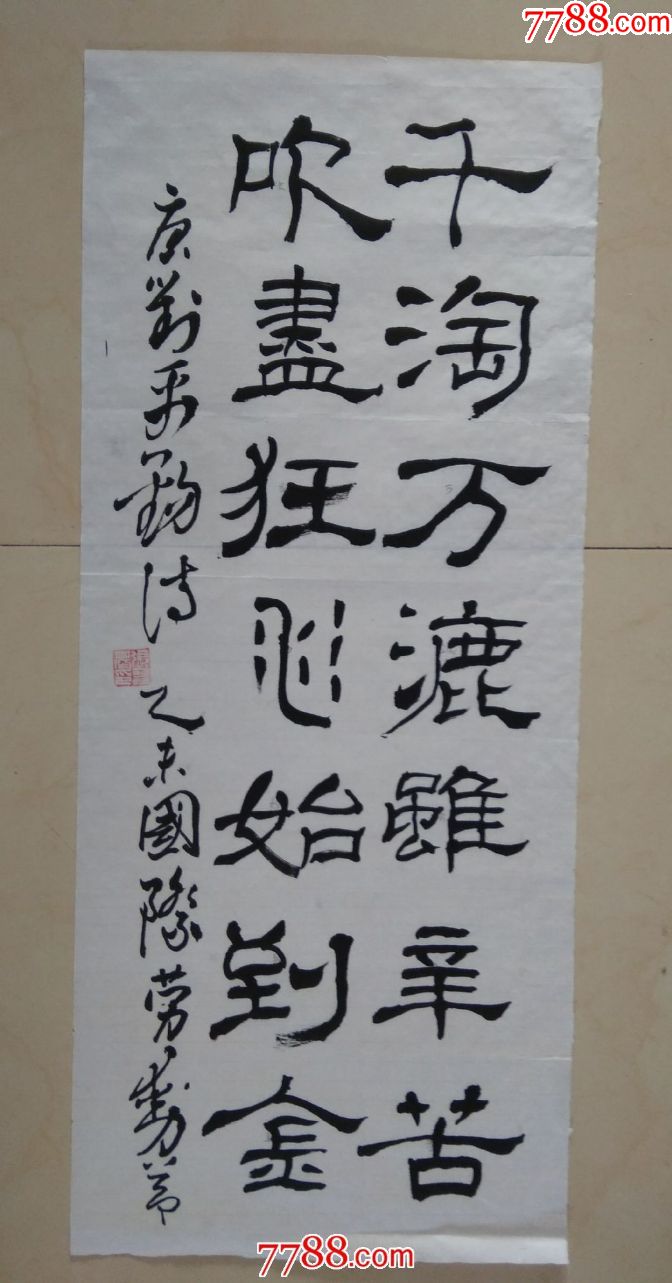 7788.com
千淘万漉雖辛苦
吹盡狂沙始到金
唐劉禹錫詩 乙未國際劳動节
7788.com